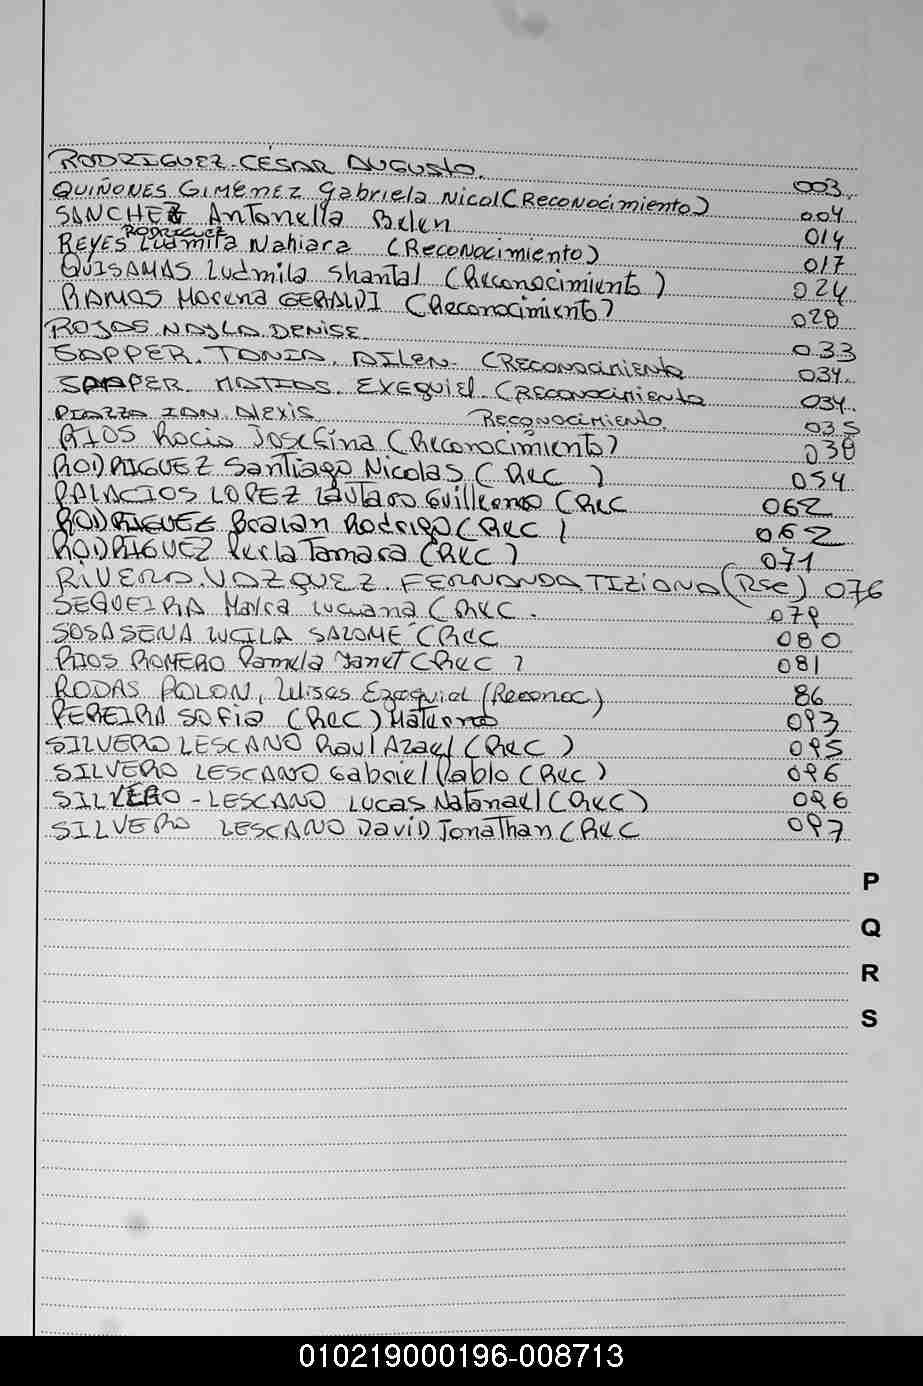 RODRIGUEZ. CESAR AUGUSTO. 003
QUIÑONES GIMENEZ Gabriela Nicol (Reconocimiento) 004
SANCHEZ Antonella Belen 014
REYES RODRIGUEZ Ludmila Nahiara (Reconocimiento) 017
QUISAMAS Ludmila Shantal (Reconocimiento) 024
RAMOS Morena GERALDI (Reconocimiento) 028
ROJAS NAYLA DENISE. 033
SAPPER. TANIA. AILEN. (RECONOCIMIENTO 034.
SAPPER. MATIAS. EXEQUIEL. (RECONOCIMIENTO 034.
PIAZZA IAN Alexis Reconocimiento. 035
RIOS Rocio Josefina (Reconocimiento) 038
RODRIGUEZ Santiago Nicolas (Rec ) 054
PALACIOS LOPEZ Lautaro Guillermo (Rec 062
RODRIGUEZ Braian Rodrigo (Rec ) 062
RODRIGUEZ Perla Tamara (Rec ) 071
RIVERA. VAZQUEZ. FERNANDA TIZIANA (Rec) 076
SEQUEIRA Luciana (Rec. 079
SOSA SENA LUCILA SALOME (Rec 080
RIOS ROMERO Pamela Yanet (Rec ) 081
RODAS POLON, Ulises Ezequiel (Reconoc) 86
PEREIRA SOFIA (Rec) Materno 093
SILVERO LESCANO Raul Azael (Rec ) 095
SILVERO LESCANO Gabriel Pablo (Rec ) 096
SILVERO - LESCANO Lucas Natanael (Rec) 096
SILVERO LESCANO David Jonathan (Rec 097
P
Q
R
S
010219000196-008713